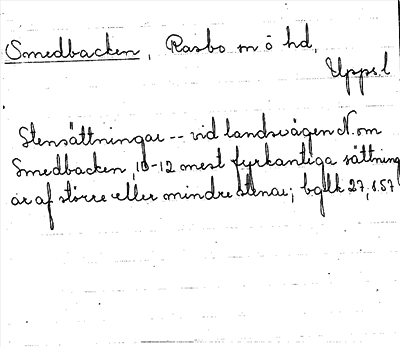 Smedbacken, Rasbo sn o hd,
Upps.l
Stensättningar -- vid landsvägen N. om
Smedbacken, 10-12 mest fyrkantiga sättning
ar af större eller mindre stenar; bglk 27, s.57